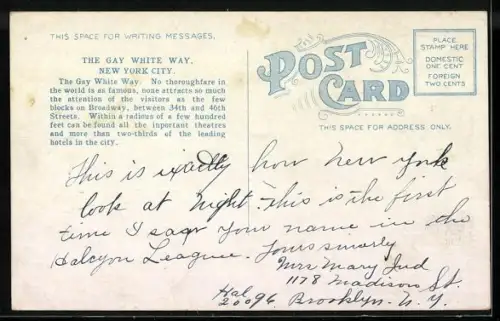 THIS SPACE FOR WRITING MESSAGES.
THE GAY WHITE WAY.
NEW YORK CITY.
The Gay White Way. No thoroughfare in
the world is as famous, none attracts so much
the attention of the visitors as the few
blocks on Broadway, between 34th and 46th
Streets. Within a radius of a few hundred
feet can be found all the important theatres
and more than two-thirds of the leading
hotels in the city.
POST
CARD
PLACE
STAMP HERE
DOMESTIC
ONE CENT
FOREIGN
TWO CENTS
THIS SPACE FOR ADDRESS ONLY.
This is exactly how New York
look at Night. This is the first
time I saw your name in the
Halcyon League. Yours
Mrs Mary Jud
1178 Madison St.
Hal Brooklyn. N. Y.
20096